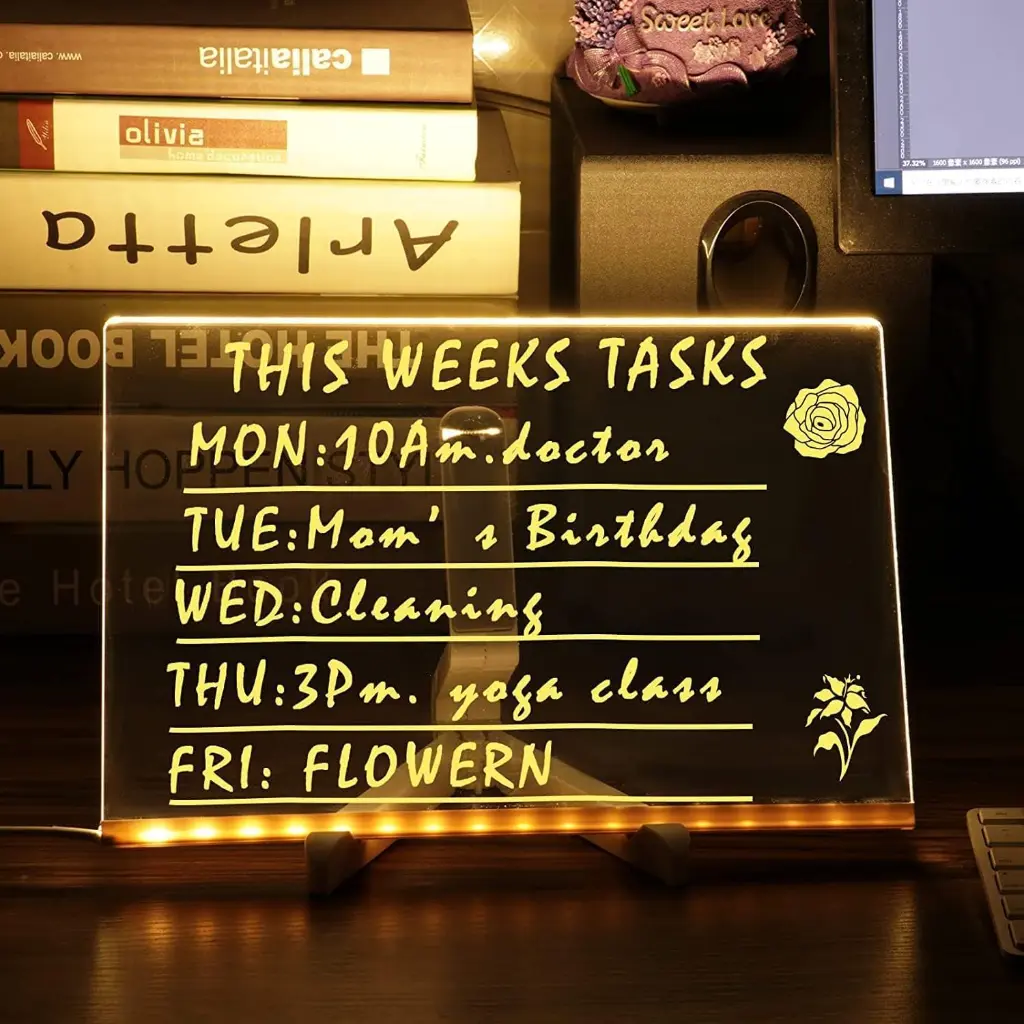 www.caliaitalia.c
caliaitalia
olivia
Arletta
THE HOTEL BOOK
LLY HOPPEN STYL
e Hotel Book
Sweet Love
37.32% 1600 像素 x 1600 像素 (96 ppi)
THIS WEEKS TASKS
MON:10Am.doctor
TUE:Mom's Birthday
WED:Cleaning
THU:3Pm. yoga class
FRI: FLOWERN